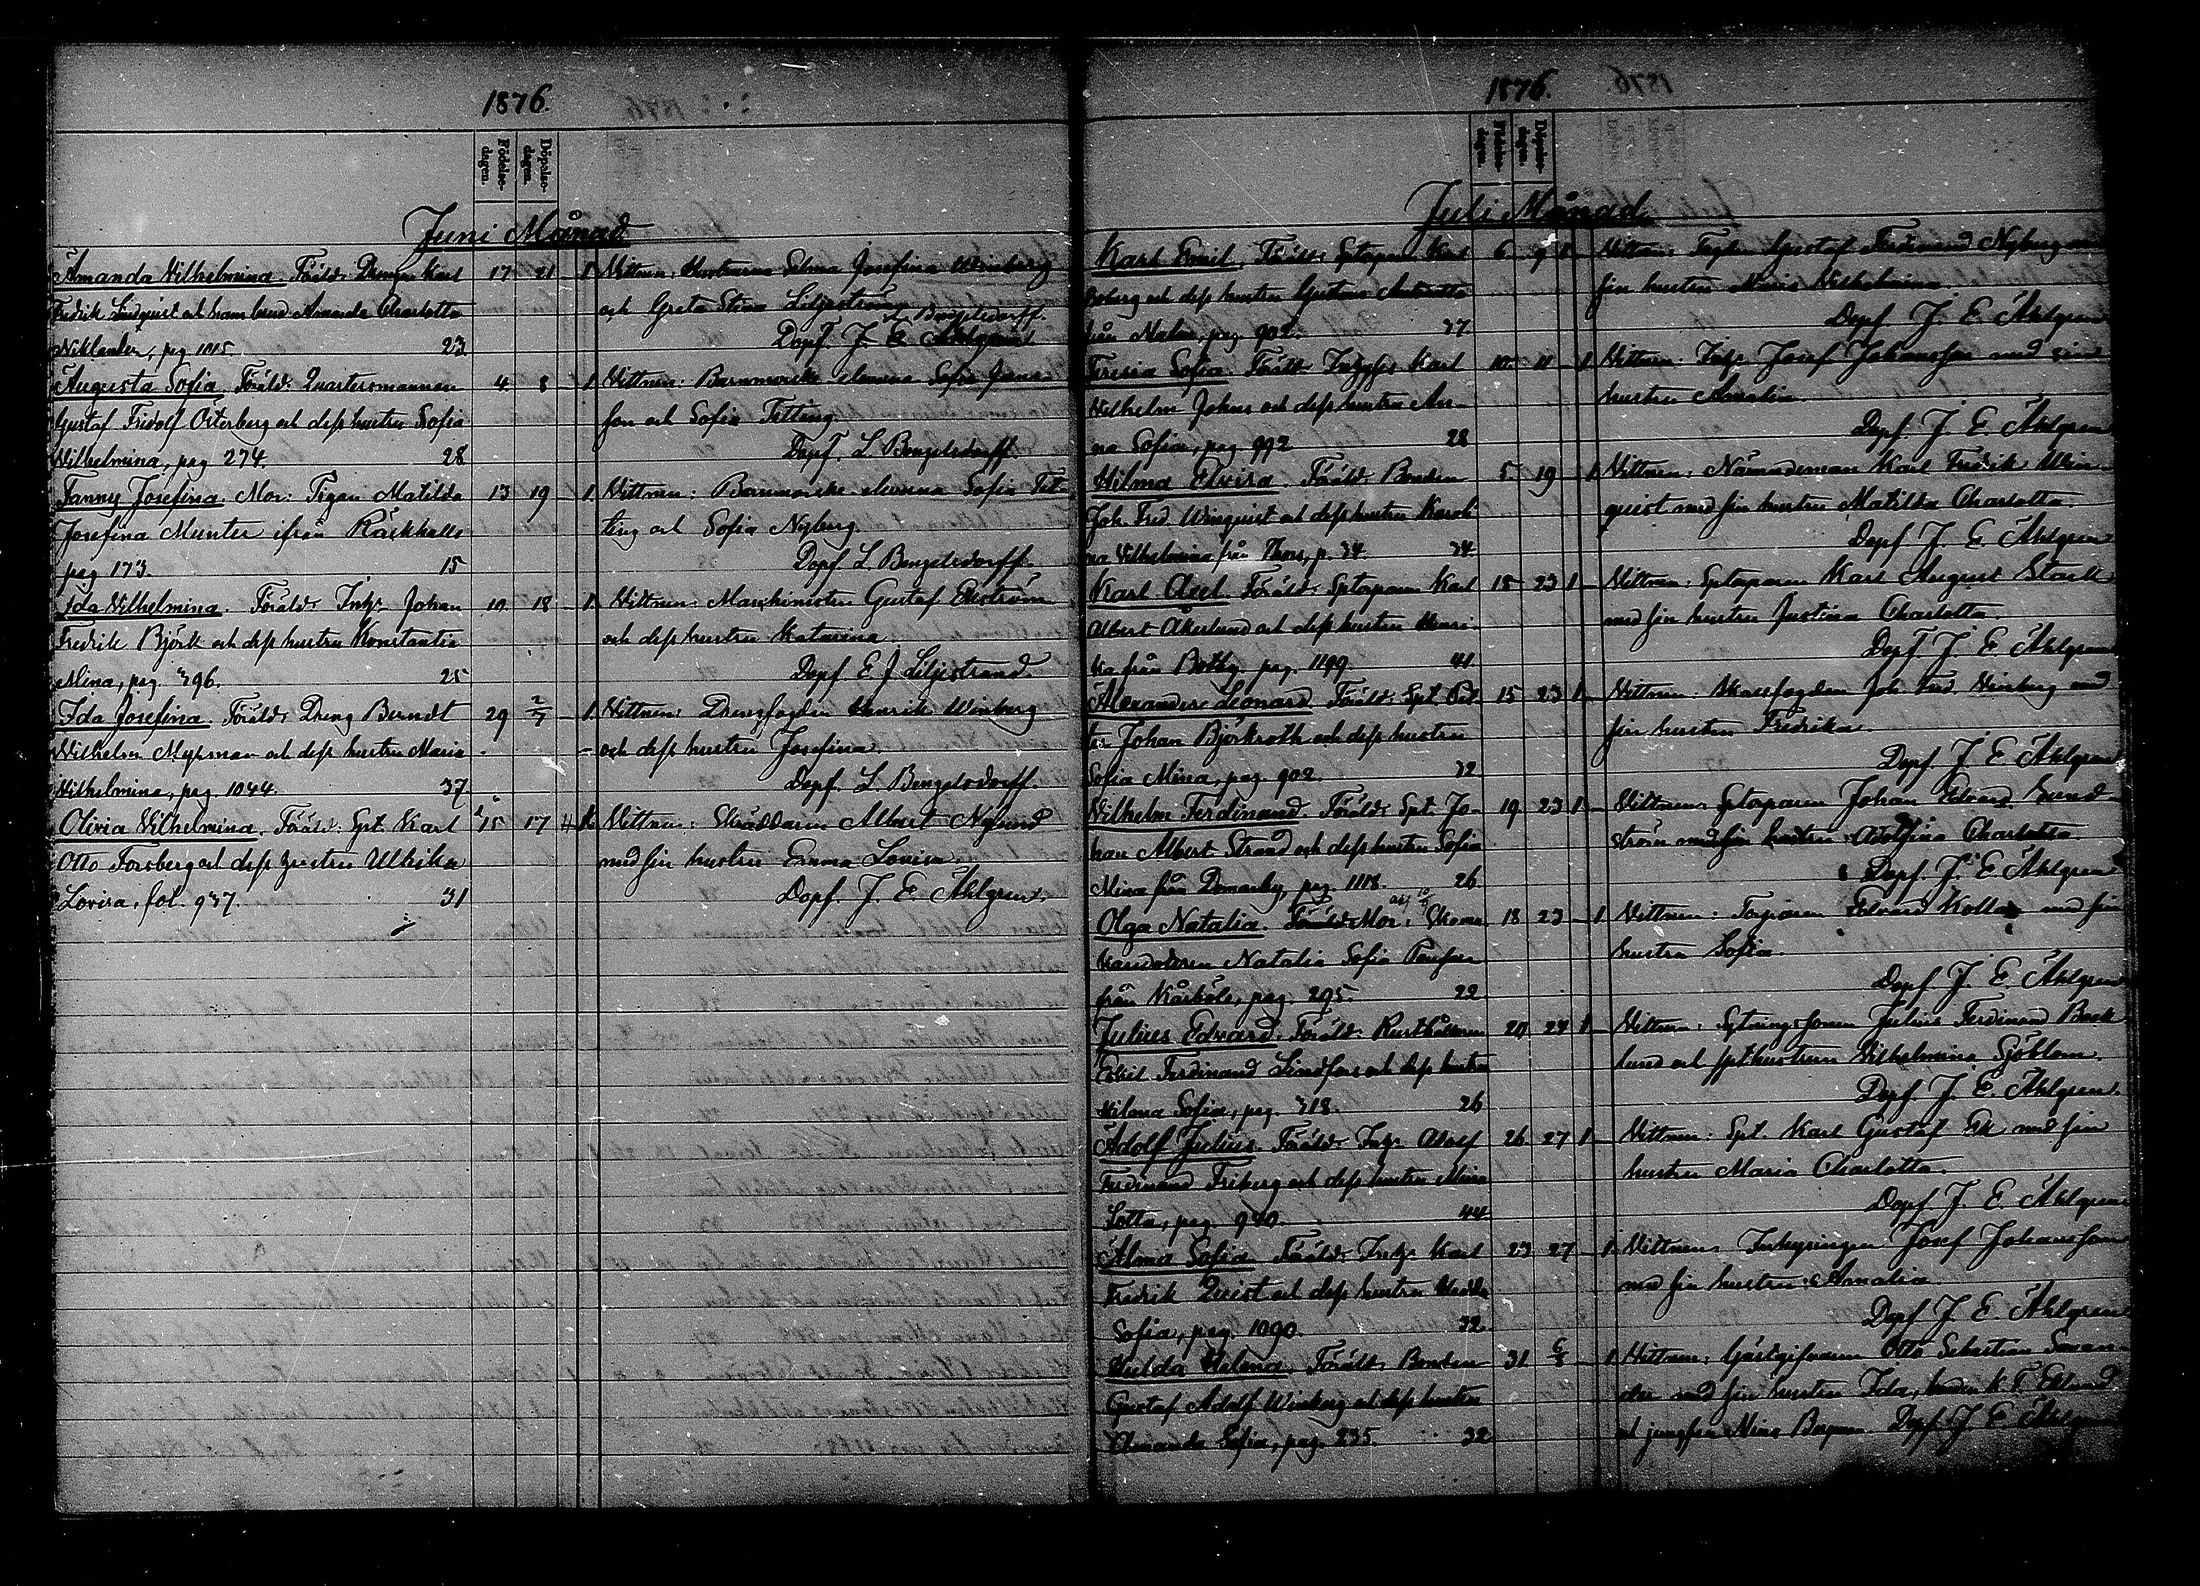 1876.
Födelse-dagen.
Döpelse-dagen.
Juni Månad
Amanda Vilhelmina. Föräld: Drengen Karl 17 21 – 1
Fredrik Lindqvist och hans brud Amanda Charlotta
Niklander, pag 1015. 23
Vittnen: Hustrurna Selma Josefina Winberg
och Greta Stina Liljeström
Döpf. J. E. Ahlgren
Augusta Sofia Föräld: Quartersmannen 4 8 – 1
Gustaf Fridolf Österberg och dess hustru Sofia
Wilhelmina, pag 274. 28
Vittnen: Barnmorske eleverna Sofia Jans-
son och Sofia Tetting.
Döpf. L. Bengelsdorff.
Fanny Josefina. Mor: Pigan Matilda 13 19 – 1
Josefina Munter ifrån Räckhalls
pag 173. 15
Vittnen: Barnmorske eleverna Sofia Tet-
ting och Sofia Nyberg.
Döpf L. Bengelsdorff.
Ida Vilhelmina. Föräld: Inhs: Johan 10 18 – 1
Fredrik Björk och dess hustru Konstantia
Mina, pag. 396. 25
Vittnen: Maschinisten Gustaf Ekström
och dess hustru Katarina.
Döpf E J Liljestrand.
Ida Josefina. Föräld: Dreng Berndt 29 2/7 – 1
Wilhelm Myrman och dess hustru Maria
Wilhelmina, pag. 1044. 37
Vittnen: Drengfogden Henrik Winberg
och dess hustru Josefina.
Döpf. L. Bengelsdorff.
Olivia Vilhelmina. Föräld: Spt Karl 15 17
Otto Forsberg och dess hustru Ulrika
Lovisa, fol. 937. 31
Vittnen: Skräddaren Albert Nylund
med sin hustru Emma Lovisa.
Döpf. J. E. Ahlgren.
1876.
Födelse-dagen.
Döpelse-dagen.
Juli Månad
Karl Emil. Föräld: Sptorparen Karl 6 9 1
Boberg och dess hustru Gustava Antoinetta
från Malm, pag 902. 37
Vittnen: Gustaf Ferdinand Nyberg med
sin hustru Maria Wilhelmina.
Döpf. J. E. Ahlgren
Teresia Sofia. Föräld: Karl 10 11 – 1
Wilhelm Johns och dess hustru An-
na Sofia, pag 992 28
Vittnen: Inhs Josef Johansson med sin
hustru Amalia.
Döpf. J E Ahlgren
Hilma Elvira. Föräld: Bonden 5 19 – 1
Joh. Fred Winqvist och dess hustru Karoli-
na Vilhelmina från Thors, p. 34. 34
Vittnen: Nämndeman Karl Fredrik Win-
quist med sin hustru Matilda Charlotta.
Döpf J. E. Ahlgren
Karl Axel. Föräld: Sptorparen Karl 15 23 1 –
Albert Åkerlund och dess hustru Henri-
ka från Botby pag. 1199 41
Vittnen: Sptorparen Karl August Stark
med sin hustru Justina Charlotta.
Döpf J. E. Ahlgren
Alexander Leonard Föräld: Spt Pet- 15 23 1 –
ter Johan Björkroth och dess hustru
Sofia Mina, pag. 902. 32
Vittnen: Joh. Fred. Winberg med
sin hustru Fredrika.
Döpf. J. E. Ahlgren
Vilhelm Ferdinand. Föräld: Spt. Jo- 19 23 1 –
han Albert Strand och dess hustru Sofia
Mina från Domarby, pag. 1118. 26
Vittnen: Sptorparen Johan Edvard Sund-
ström med sin hustru Adolfina Charlotta.
Döpf. J. E. Ahlgren
Olga Natalia. Mor: 18 23 – 1
Natalia Sofia
från Kårböle, pag. 295. 22
Vittnen: Torparen Edvard med sin
hustru Sofia.
Döpf. J. E. Ahlgren
Julius Edvard. Föräld: Rusthållaren 20 24 1 –
Ferdinand Lindfors och dess hustru
Vilma Sofia, pag. 318. 26
Vittnen: Sytningssonen Julius Ferdinand Back-
lund och spthustrun Vilhelmina Sjöblom.
Döpf. J. E. Ahlgren.
Adolf Julius. Föräld: Inhs Adolf 26 27 1 –
Ferdinand Friberg och dess hustru Mina
Lotta, pag. 940. 44
Vittnen: Spt. Karl Gustaf Ek med sin
hustru Maria Charlotta.
Döpf. J. E. Ahlgren
Alma Sofia. Föräld: Inhs Karl 23 27 – 1
Fredrik Quist och dess hustru Hedda
Sofia, pag. 1090. 32
Vittnen: Inhysingen Josef Johansson
med sin hustru Amalia.
Döpf J. E. Ahlgren
Hulda Helena. Föräld: Bonden 31 6/8 – 1
Gustaf Adolf Winberg och dess hustru
Amanda Sofia, pag. 235. 32
Vittnen: Gästgifvaren Otto Sebastian Savan-
der med sin hustru Ida, K F Eklund
och jungfru Mina Bergman. Döpf J E Ahlgren